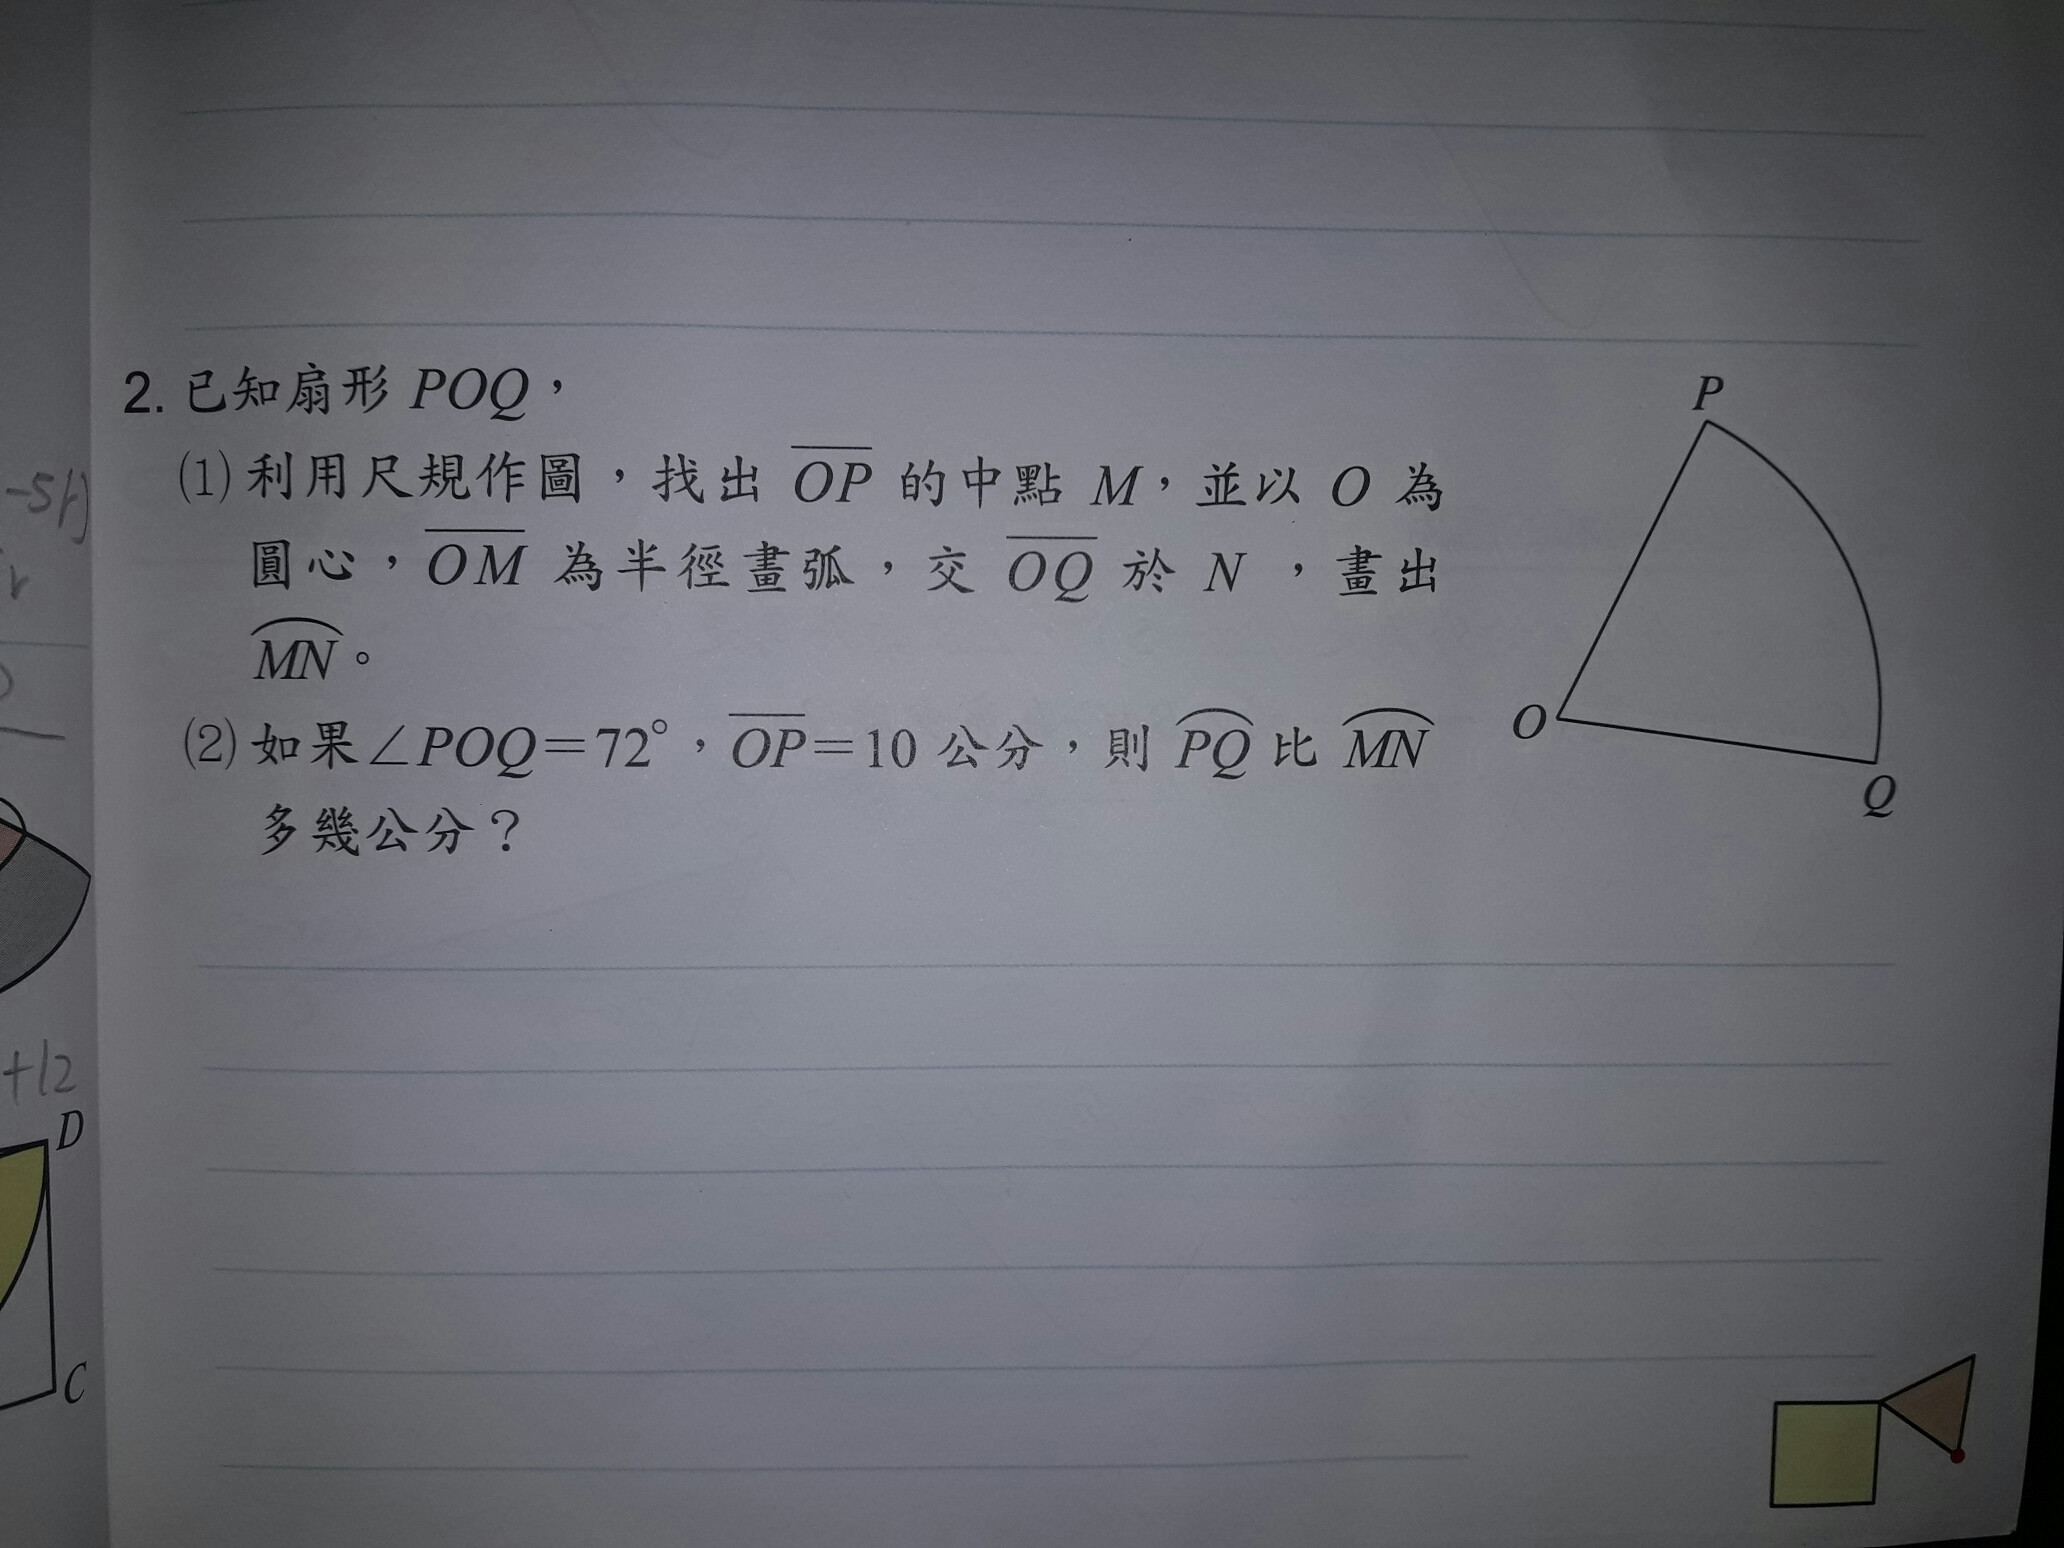 2. 已知扇形 POQ，
(1) 利用尺規作圖，找出 OP 的中點 M，並以 O 為
圓心，OM 為半徑畫弧，交 OQ 於 N ，畫出
MN。
(2) 如果∠POQ=72°，OP=10 公分，則 PQ 比 MN
多幾公分？
P
O
Q
-5π)
+12
D
C